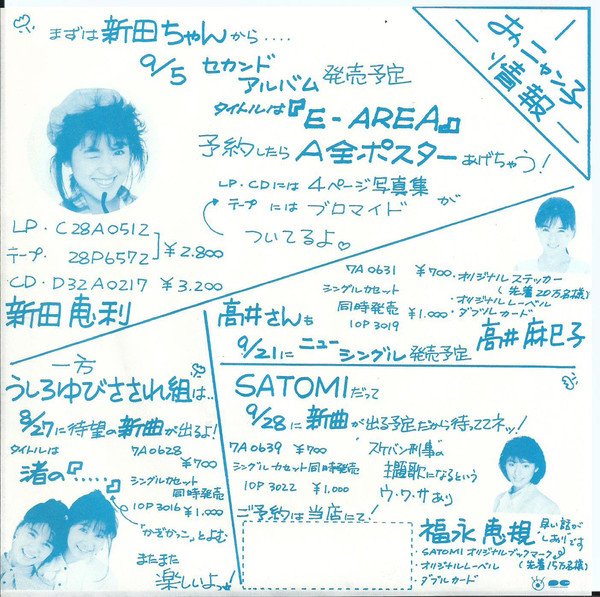 おニャン子
情報
まずは 新田ちゃんから....
9/5 セカンド
アルバム 発売予定
タイトルは『E-AREA』
予約したら A全ポスター あげちゃう!
LP・CDには 4ページ写真集
が
テープ には ブロマイド
ついてるよ♡
LP・C28A0512
テープ・28P6572
¥2.800
CD・D32A0217 ¥3.200
新田 恵利
高井さんも
9/21に ニュー
シングル 発売予定
7A0631 ¥700
シングルカセット
同時発売 ¥1.000
10P3019
・オリジナル ステッカー
(先着20万名様)
・オリジナルレーベル
・ダブルカード
高井 麻巳子
一方
うしろゆびさされ組は..
8/27に待望の新曲が出るよ!
タイトルは
7A0628
渚の『.....』
¥700
シングルカセット
同時発売
10P3016 ¥1.000
「かぎかっこ」とよむ
またまた
楽しいよっ!
SATOMIだって
9/28に 新曲が出る予定だから待っててネッ!
7A0639 ¥700
シングルカセット同時発売
10P3022 ¥1.000
"スケバン刑事"の
主題歌になるという
ウ・ワ・サあり
ご予約は当店にて!
福永 恵規
早い話が
しおりです
・SATOMI オリジナルブックマーク
・オリジナルレーベル
(先着15万名様)
・ダブルカード